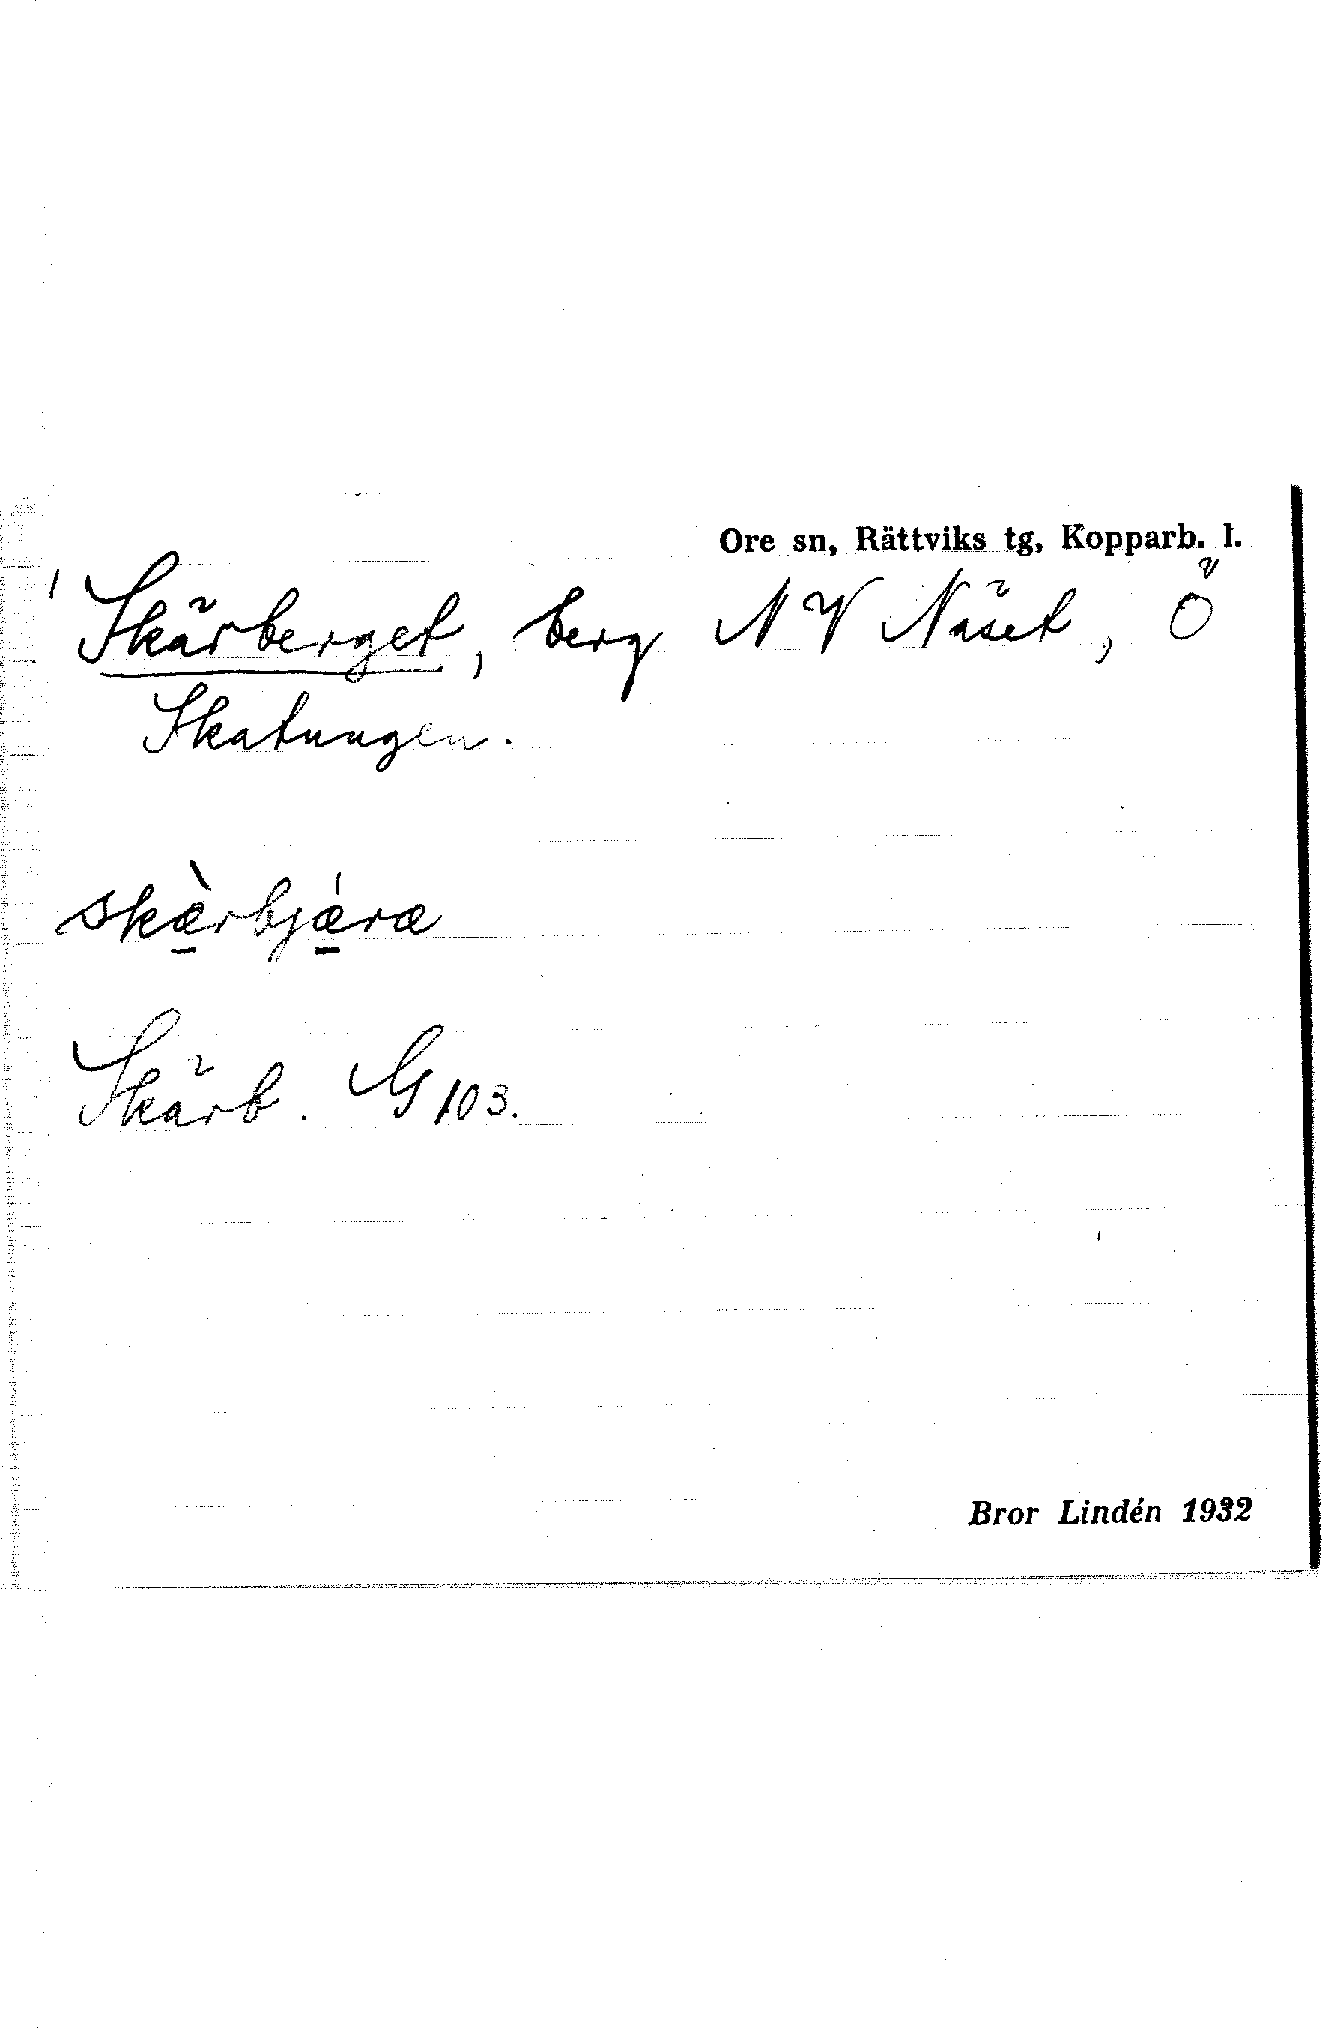 Ore sn, Rättviks tg, Kopparb. l.
Skärberget, berg NV Näset, Ö
Skatungen.
skæ̱̀rbjǽ̱ræ
Skärb. G 103.
Bror Lindén 1932